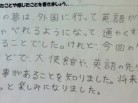 たことや感じたことを書きましょう。
の夢は、外国に行って英語が
かれるようになって
ることでした。けれど、今回の
とで、大使館や英語の先
事があることを知りました。将来
と楽しみになりました。